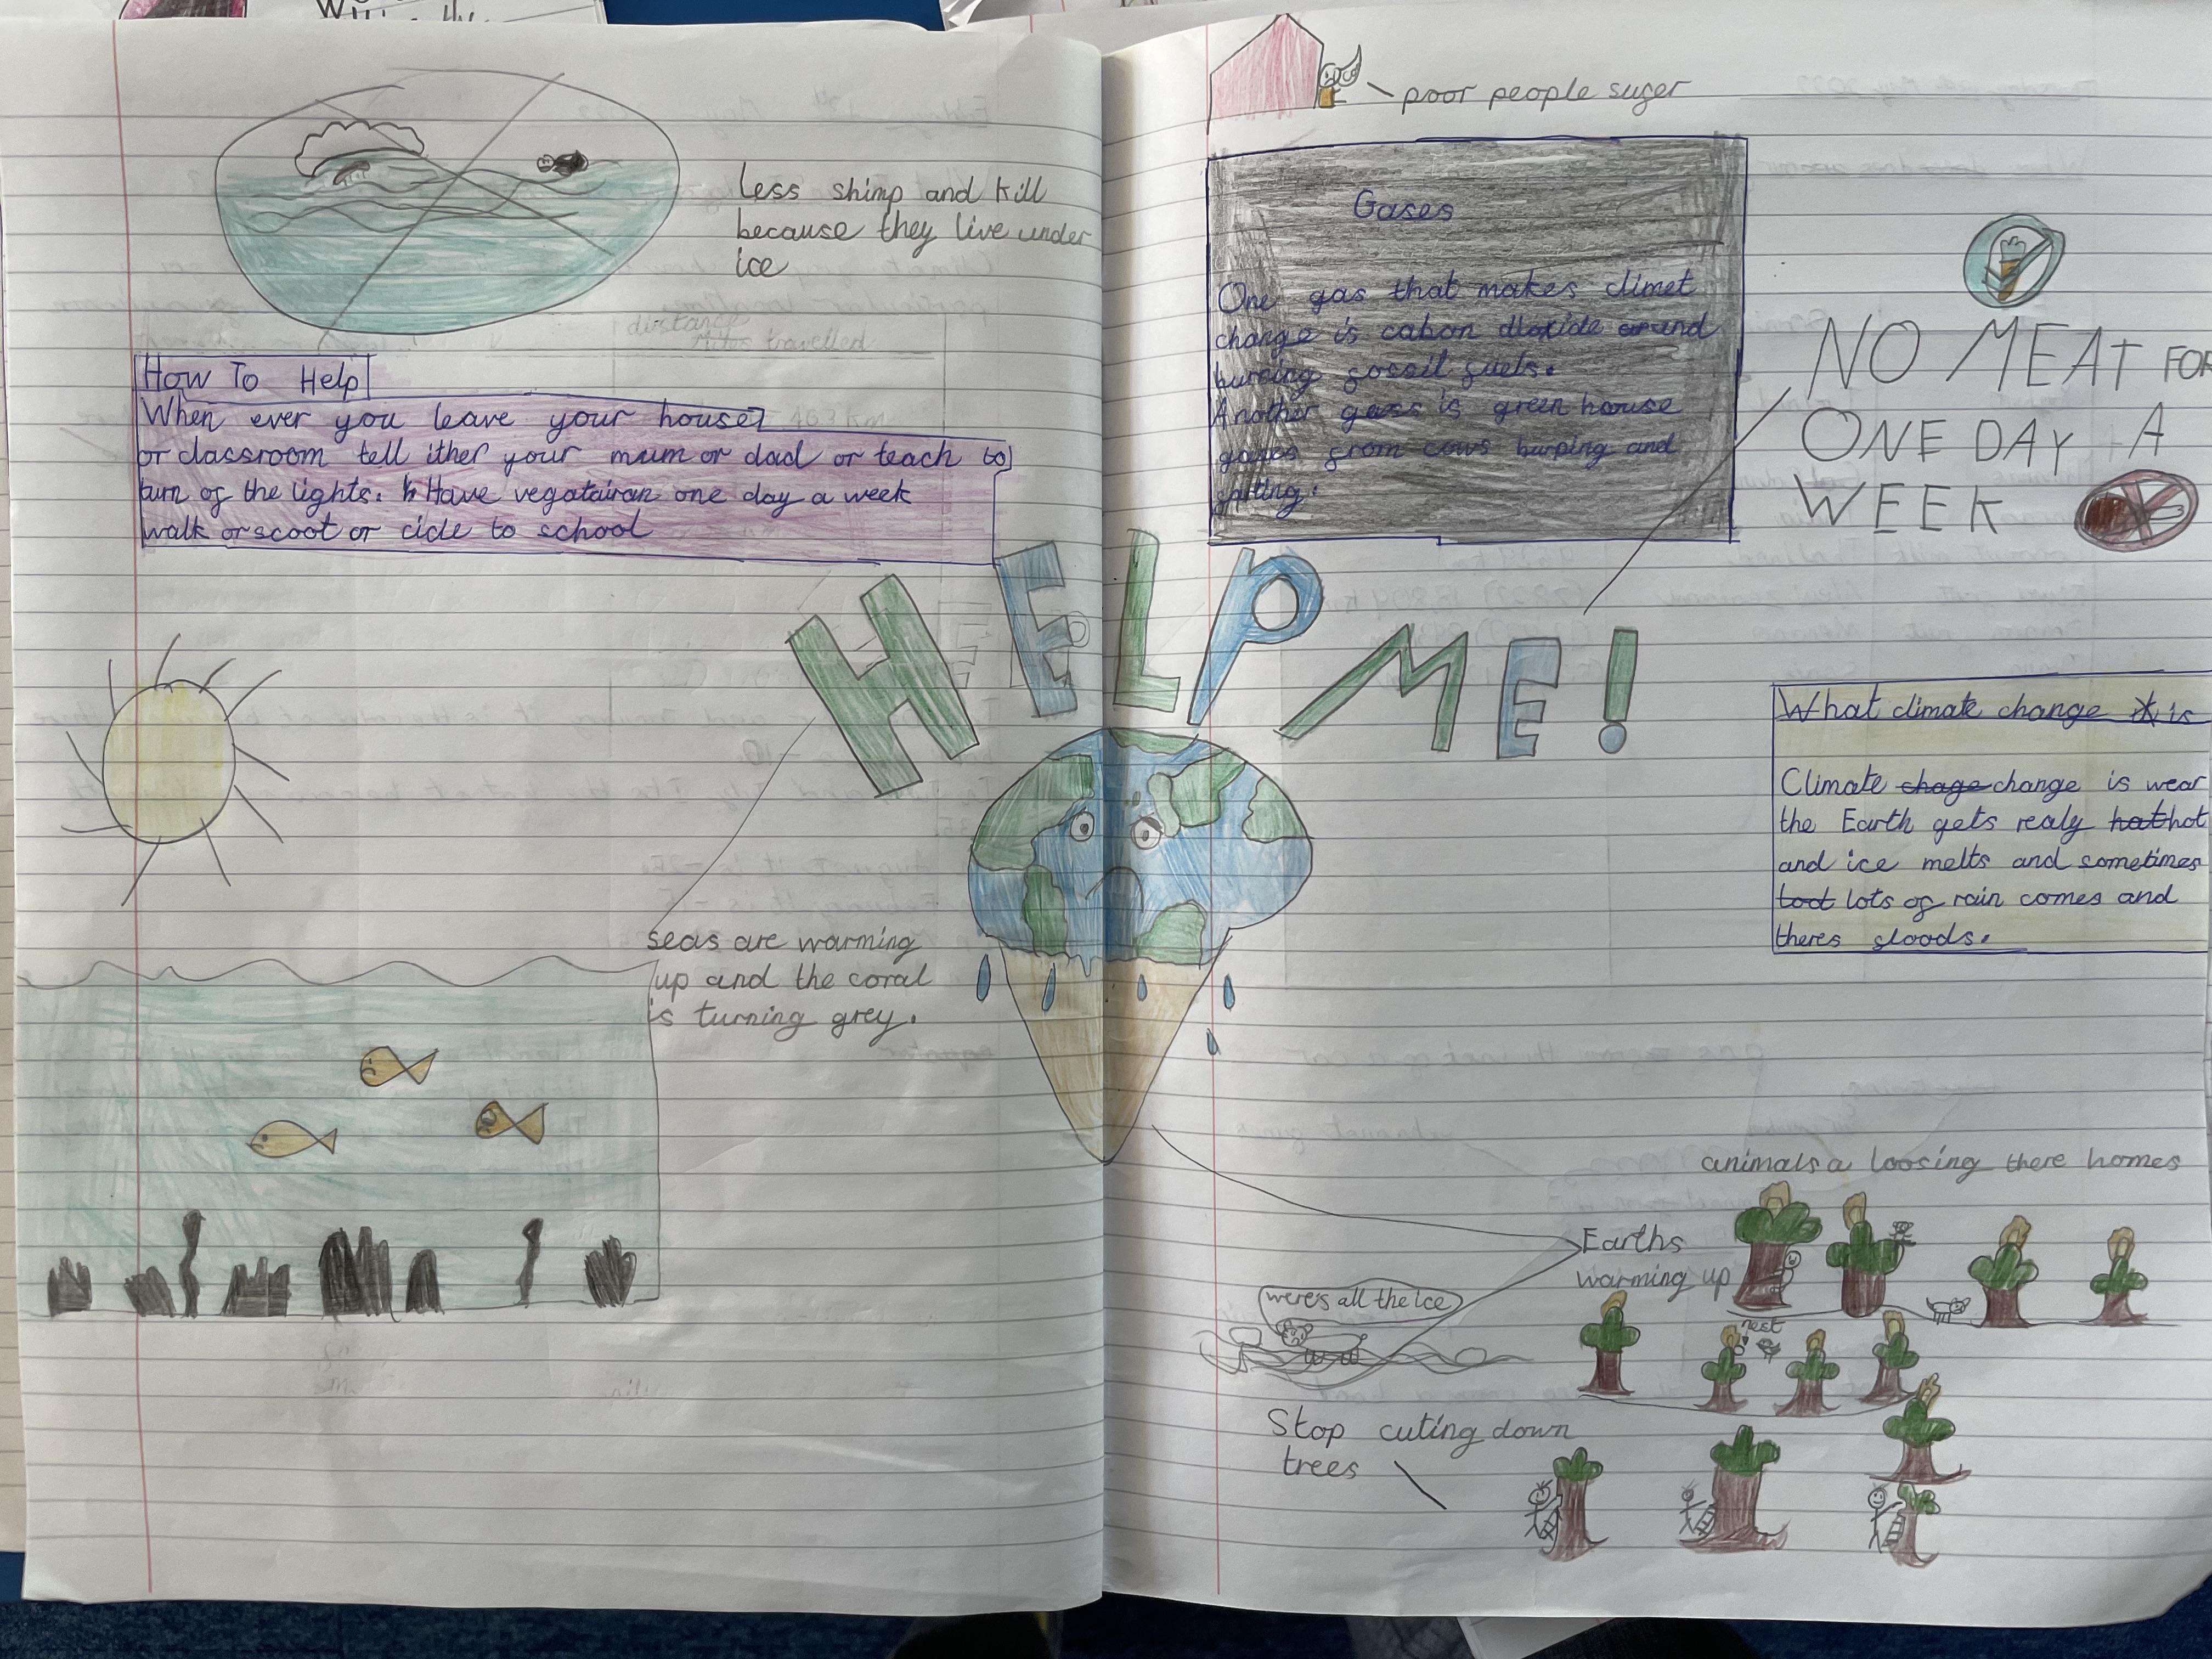 less shimp and kill
because they live under
ice
How To Help
When ever you leave your house
or classroom tell ither your mum or dad or teach to
turn of the lights. Have vegatairan one day a week
walk or scoot or cicle to school
HELP ME!
seas are warming
up and the coral
is turning grey.
poor people suffer
Gases
One gas that makes climet
change is cabon dioxide around
burning fossil fuels.
Another gass is green house
gases from cows burping and
NO MEAT FOR
ONE DAY A
WEEK
What climate change is
Climate chage change is wear
the Earth gets realy hat hot
and ice melts and sometimes
lots of rain comes and
theres floods.
animals a loosing there homes
Earths
warming up
were's all the ice
nest
Stop cuting down
trees